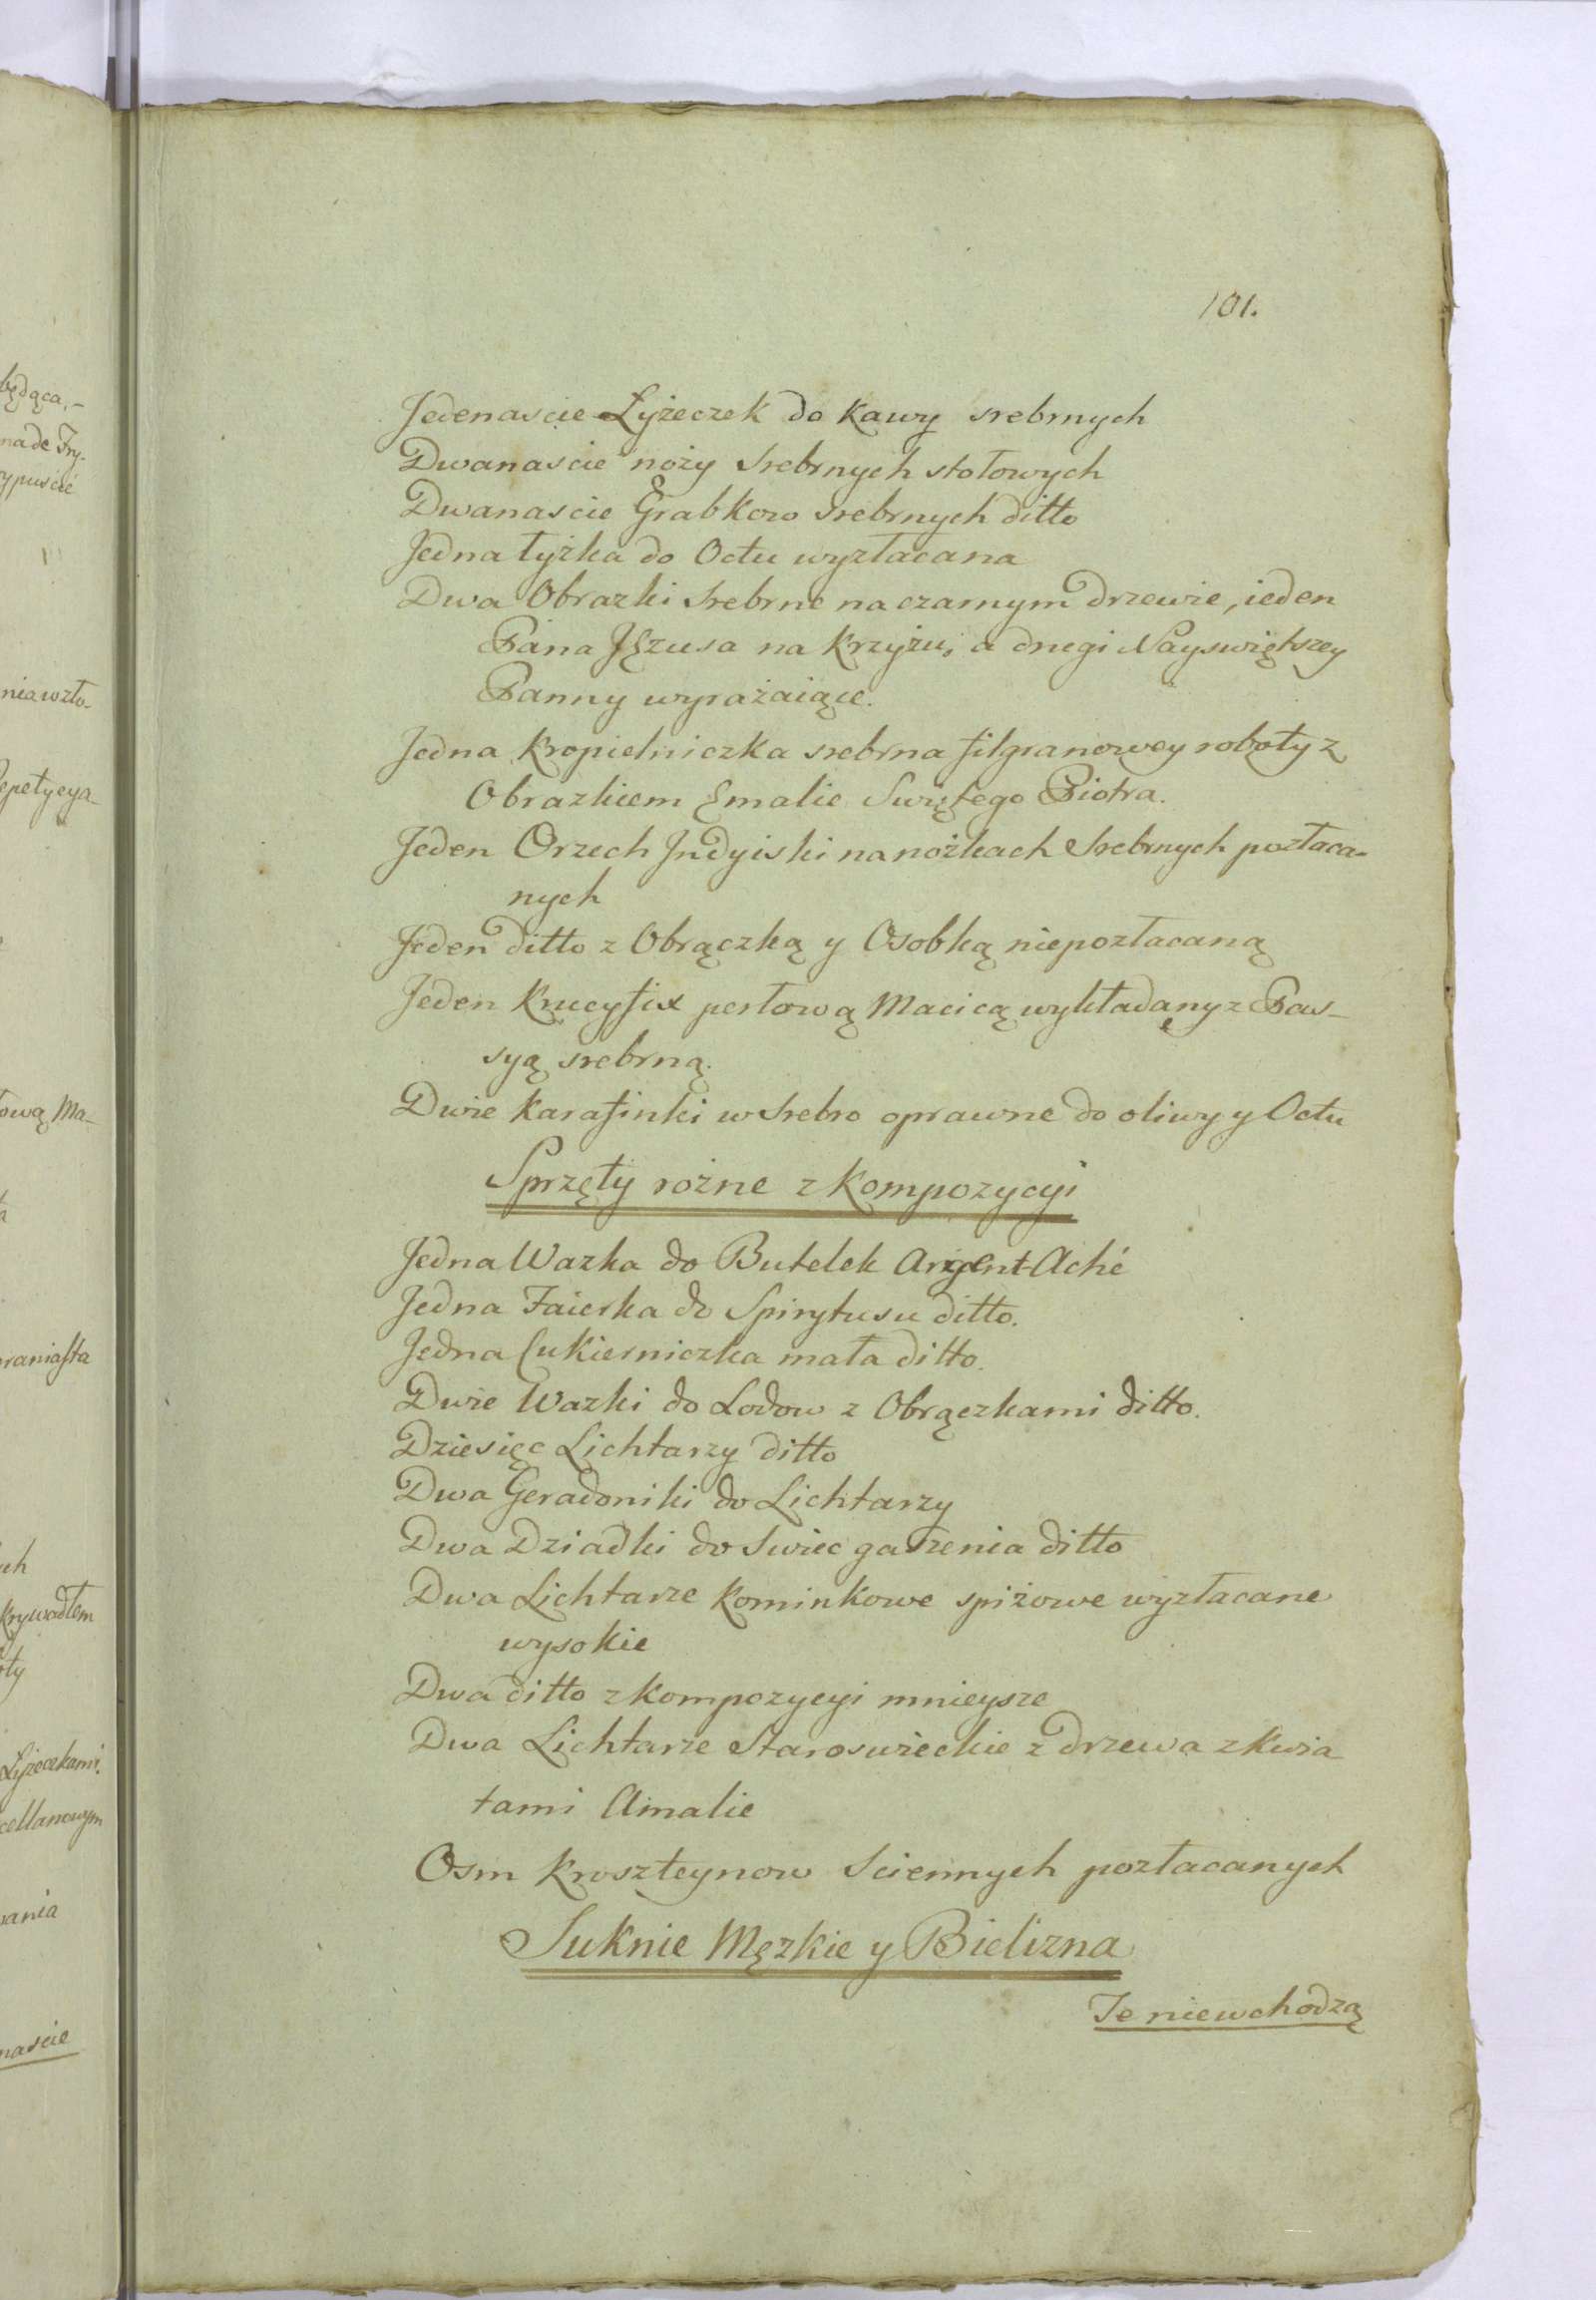 będąca.-
nade Fry-
rypuście
niawzło-
epetycya-
ową Ma-
raniasta
ych
krywadłem
Łyżeczkami.
cellanowym
wania
naście
101.
Jedenascie Łyżeczek do Kawy srebrnych
Dwanascie noży Srebrnych stołowych
Dwanascie Grabkow Srebrnych ditto
Jedna łyżka do Octu wyzłacana
Dwa Obrazki Srebrne na czarnym drzewie, ieden
Pana Jęzusa na Krzyżu, a drugi Nayswiętszey
Panny wyrażaiące.
Jedna Kropielniczka srebrna filgranowey roboty z
Obrazkiem Emalie Swiętego Piotra.
Jeden Orzech Jndyiski na nożkach Srebrnych pozłaca-
nych
Jeden ditto z Obrączką y Osobką niepozłacaną
Jeden Krucyfix perłową Macicą wykładany z Pas-
syą srebrną.
Dwie Karafinki w Srebro oprawne do oliwy y Octu
Sprzęty rożne z Kompozycyi
Jedna Wazka do Butelek Argent-Aché
Jedna Faierka do Spirytusu ditto.
Jedna Cukierniczka mała ditto.
Dwie Wazki do Lodow z Obrączkami ditto.
Dziesięc Lichtarzy ditto
Dwa Geradoniki do Lichtarzy
Dwa Dziadki do Swiec gaszenia ditto
Dwa Lichtarze Kominkowe spiżowe wyzłacane
wysokie
Dwa ditto z Kompozycyi mnieysze
Dwa Lichtarze Staroswieckie z drzewa z Kwia
tami Amalie
Osm Kroszteynow Sciennych pozłacanych
Suknie Męzkie y Bielizna
Te niewchodzą